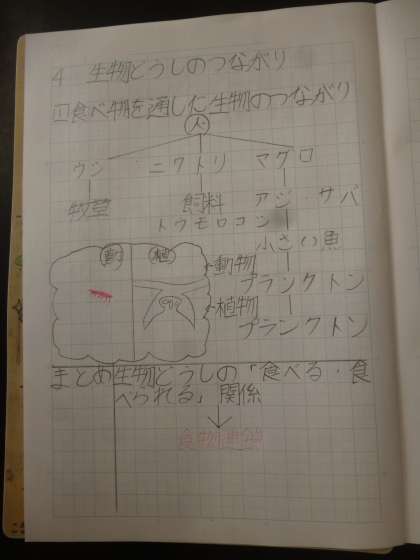 4 生物どうしのつながり
1 食べ物を通した生物のつながり
人
ウシ ニワトリ マグロ
飼料 アジ・サバ
トウモロコシ
小さい魚
動 植
動物
プランクトン
植物
プランクトン
まとめ 生物どうしの「食べる・食
べられる」関係
食物連鎖